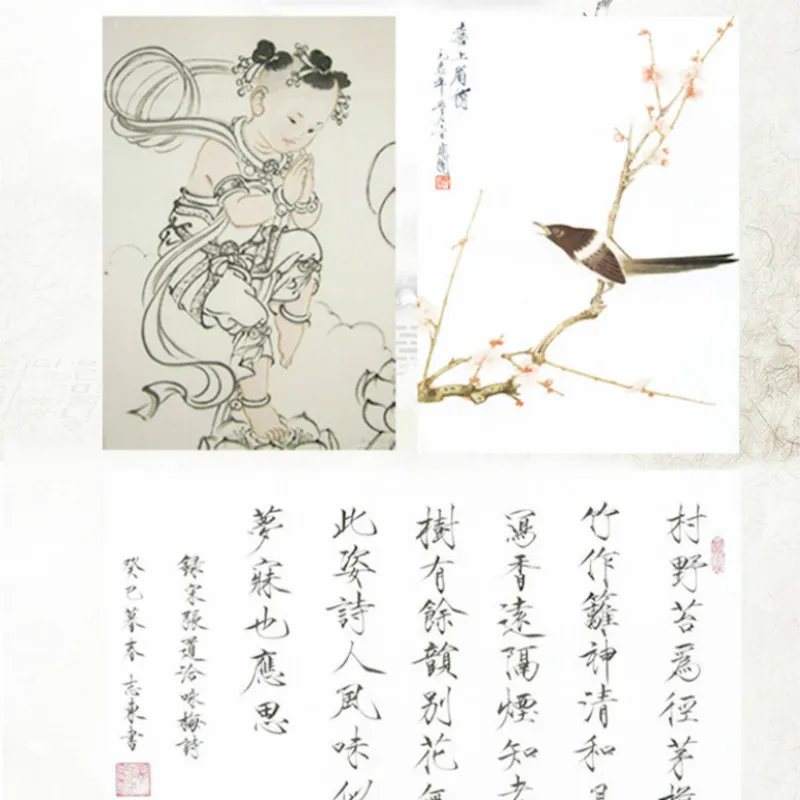 喜上眉梢
村野苔為徑茅
竹作籬神清和
寫香遠隔煙知
樹有餘韻別花無
此姿詩人風味似
夢寐也應思
録宋張道洽咏梅詩
癸巳暮春志東書